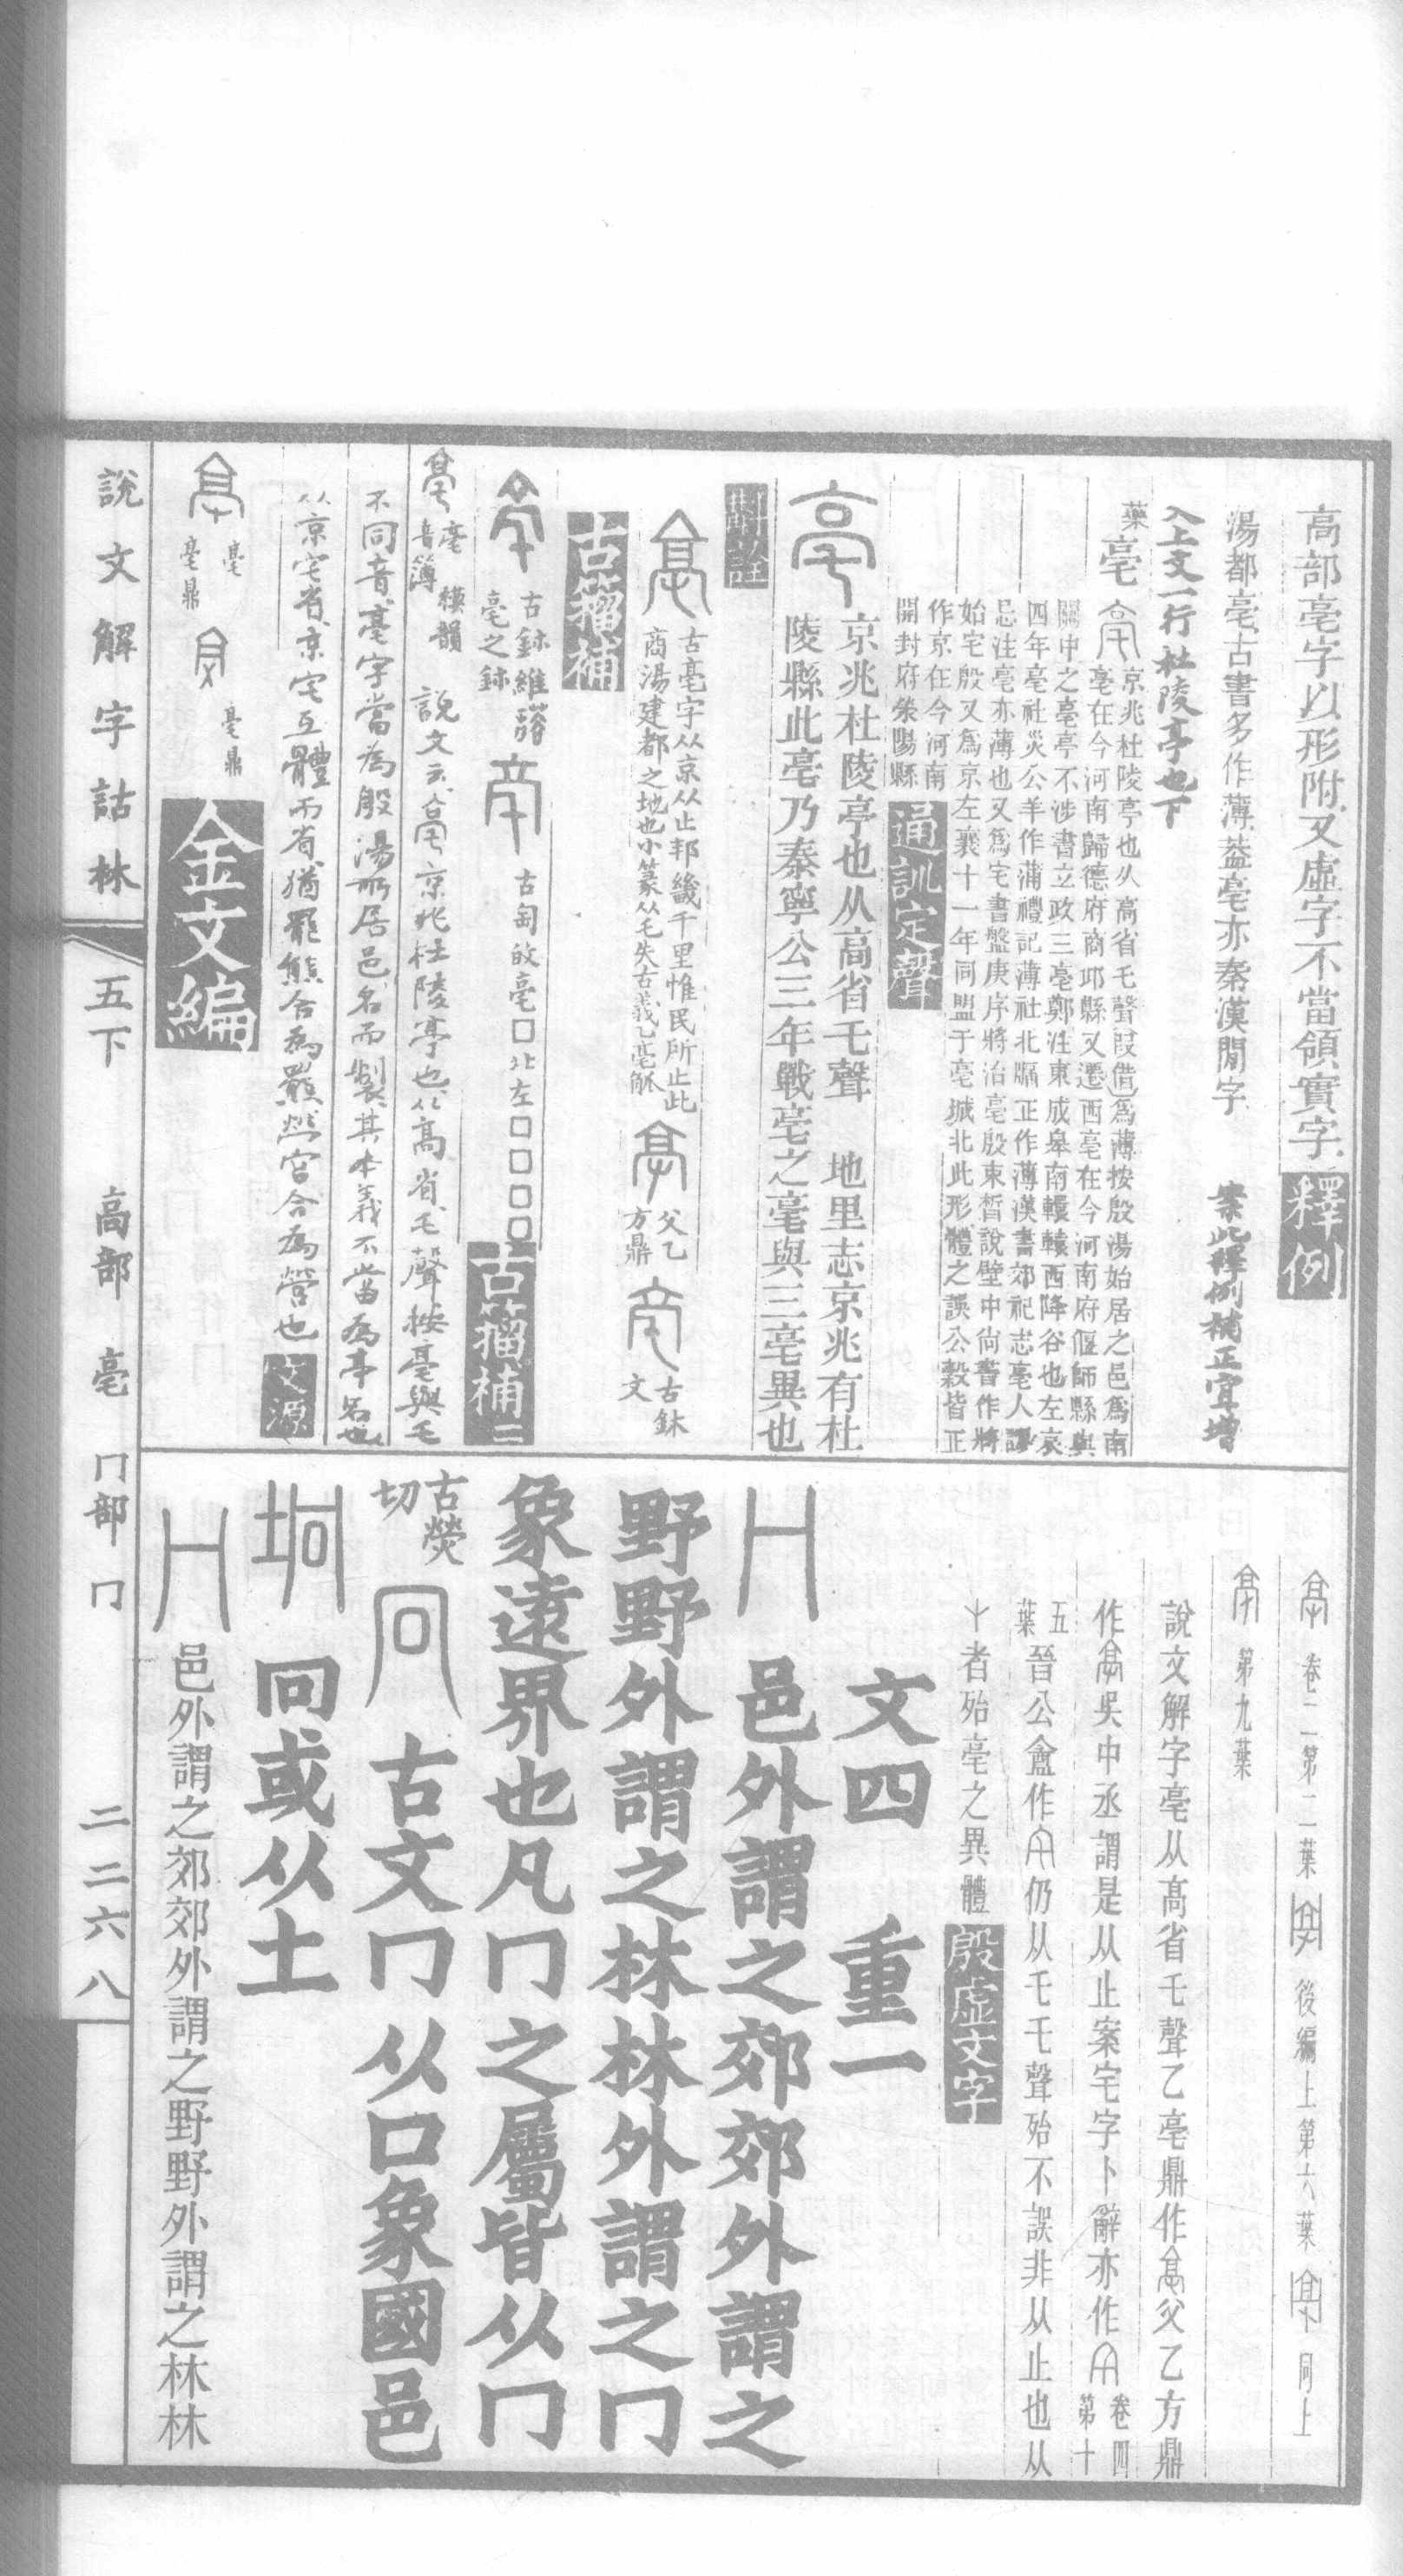 高部亳字以形附又虛字不當領實字釋例
湯都亳古書多作薄葢亳亦秦漢閒字 案此釋例補正宜增
入上文一行杜陵亭也下
葉亳
京兆杜陵亭也从高省乇聲叚借爲薄按殷湯始居之邑爲南
亳在今河南歸德府商邱縣又遷西亳在今河南府偃師縣與
關中之亳亭不涉書立政三亳鄭注東成皋南轘轅西降谷也左哀
四年亳社災公羊作蒲禮記薄社北牖正作薄漢書郊祀志亳人謬
忌注亳亦薄也又爲宅書盤庚序將治亳殷束晳說壁中尙書作將
始宅殷又爲京左襄十一年同盟于亳城北此形體之誤公穀皆正
作京在今河南
開封府滎陽縣
通訓定聲
京兆杜陵亭也从高省乇聲 地里志京兆有杜
陵縣此亳乃秦寧公三年戰亳之亳與三亳異也
斠詮
古亳字从京从止邦畿千里惟民所止此
商湯建都之地也小篆从乇失古義乙亳觚
父乙
方鼎
古鉢
文
古籀補
古鉢維
亳之鉢
古匋 亳□北左□□□□
古籀補二
亳 模韻
音薄
說文云京兆杜陵亭也从高省乇聲按亳與乇
不同音亳字當爲殷湯所居邑名而製其本義不當爲亭名也
从京宅省京宅互體而省猶罷熊合爲羆熒宮合爲營也
文源
亳
亳鼎
亳鼎
金文編
說文解字詁林 五下 高部 亳 冂部 冂 二二六八
卷二第二葉
後編上第六葉
同上
第九葉
說文解字亳从高省乇聲乙亳鼎作父乙方鼎
作吳中丞謂是从止案宅字卜辭亦作
卷四
第十
五
葉
晉公盦作仍从乇乇聲殆不誤非从止也从
屮者殆亳之異體
殷虛文字
文四 重一
邑外謂之郊郊外謂之
野野外謂之林林外謂之冂
象遠界也凡冂之屬皆从冂
古熒
切
冋 古文冂从口象國邑
坰 冋或从土
邑外謂之郊郊外謂之野野外謂之林林